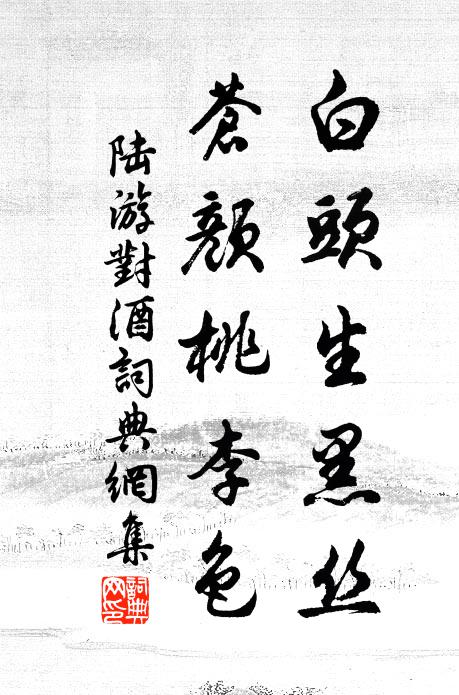 白頭生黑丝
蒼顏桃李色
陆游對酒詞典網集
詞典网印